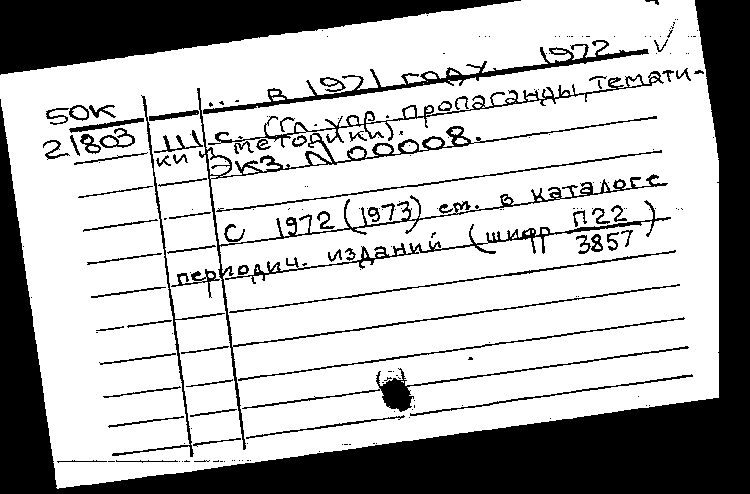 ... в 1971 году. 1972.
50к
21803 111 с. (Гл. упр. пропаганды, темати-
ки и методики).
Экз. N 00008.
С 1972 (1973) ст. в каталоге
периодич. изданий (шифр П22/3857)